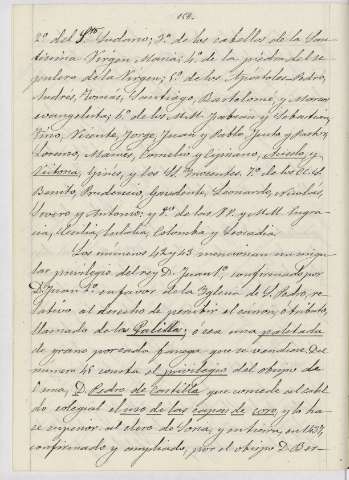 159.
2º del Sto Sudario; 3º de los cabellos de la San-
tísima Virgen María; 4º de la piedra del se-
pulcro de la Virgen; 5º de los Apóstoles Pedro,
Andrés, Tomás, Santiago, Bartolomé, y Marcos
evangelista; 6º de los M.M. Fabián y Sebastián,
Vicente, Jorge, Juan y Pablo, Justo y Pastor,
Lorenzo, Mamés, Cornelio y Cipriano, Acisclo y
Victoria, Ginés, y los SS. Inocentes; 7º de los
Benito, Prudencio, Gaudente, Leonardo, Nicolás,
Severo y Antonio; y 8º de las VV. y M.M. Engra-
cia, Cecilia, Eulalia, Colomba y Leocadia.
Los números 42 y 43 mencionan un singu-
lar privilegio del rey D. Juan 1º, confirmado por
D. Juan 2º en favor de la Iglesia de S. Pedro, re-
lativo al derecho de percibir el cánon, ó tributo,
llamado de la Palilla; ó sea una paletada
de grano por cada fanega que se vendiese. Del
número 45 consta el privilegio del obispo de
Osma, D. Pedro de Castilla que concede al cabil-
do colegial el uso de las capas de coro, y lo ha-
ce superior al clero de Soria, y en tierra, en 1437,
confirmado y ampliado, por el obispo D. Ber-